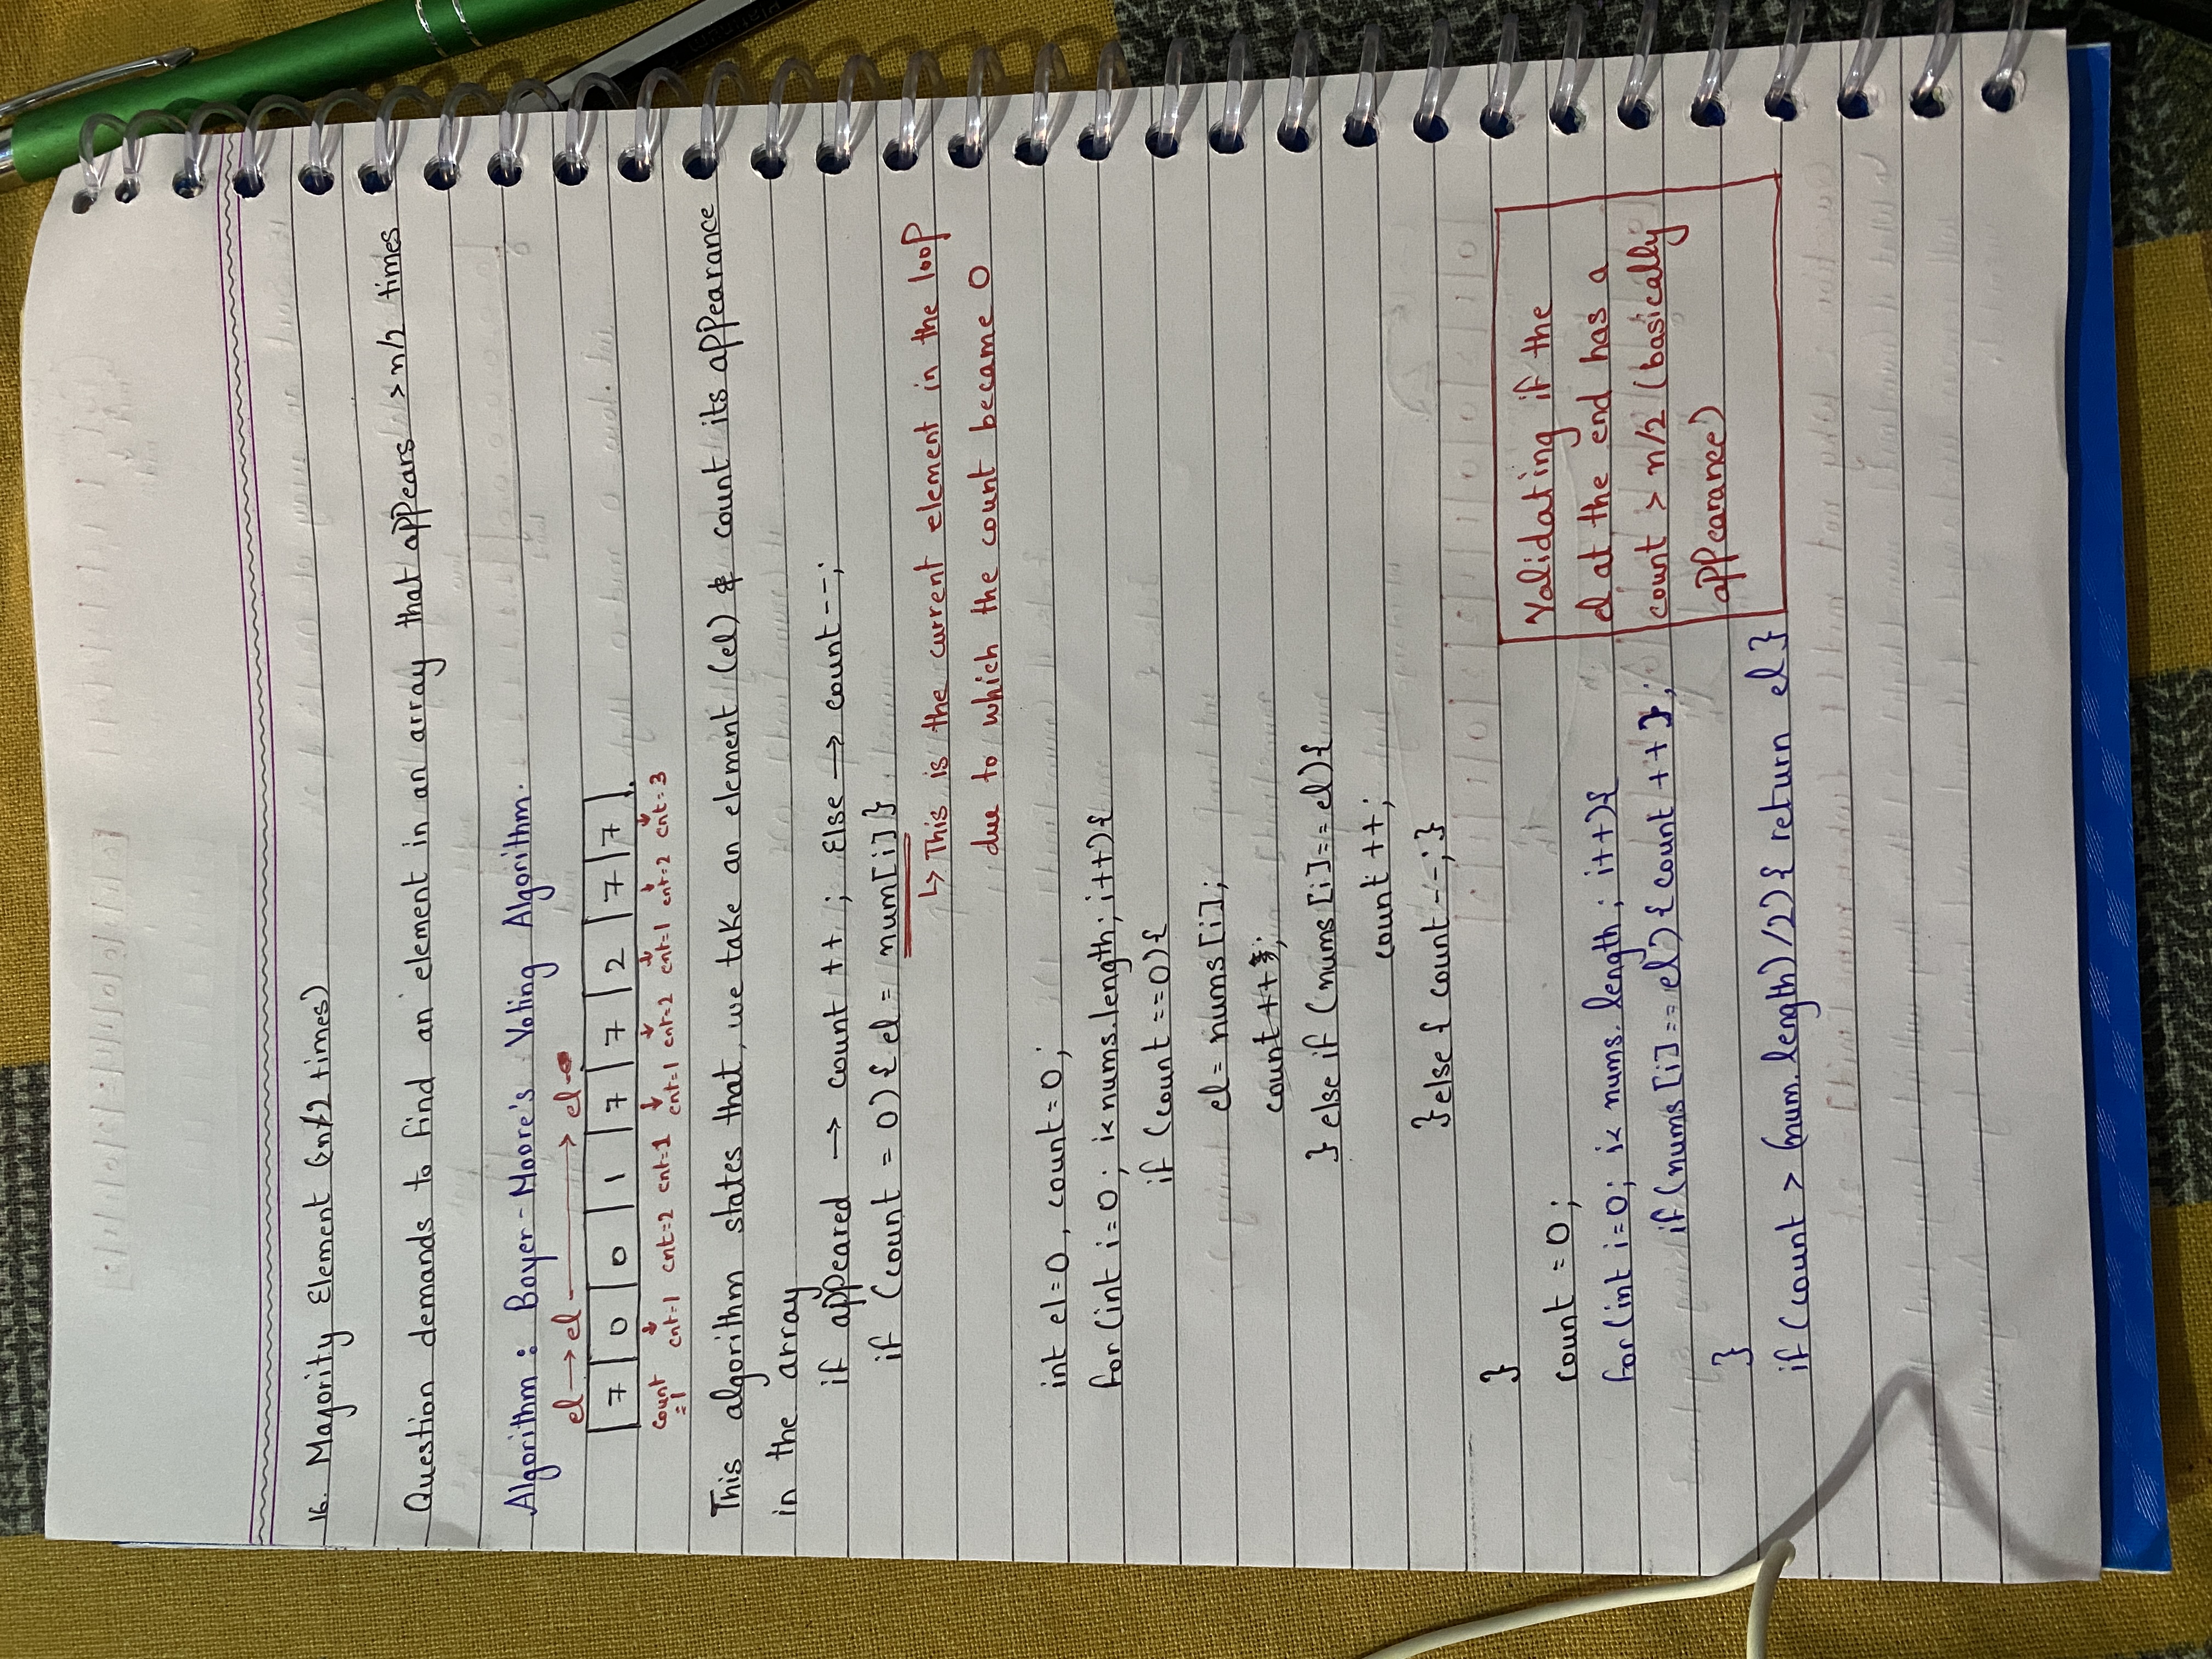 16. Majority Element (>n/2 times)
Question demands to find an element in an array that appears > n/2 times
Algorithm : Boyer-Moore's Voting Algorithm.
el → el → el
7 0 0 1 7 7 2 7 7
count =1 cnt=1 cnt=2 cnt=1 cnt=1 cnt=2 cnt=1 cnt=2 cnt=3
This algorithm states that, we take an element (el) & count its appearance
in the array
if appeared → count ++ ; Else → count--;
if (count = 0) { el = num[i] }
↳ This is the current element in the loop
due to which the count became 0
int el=0, count=0;
for (int i=0; i< nums.length; i++){
if (count ==0){
el= nums[i];
count ++;
} else if (nums [i]== el){
count ++;
} else { count --; }
}
count = 0;
for (int i=0; i< nums. length; i++){
if (nums [i]== el) { count ++ };
}
if (count > (num. length) /2) { return el }
Validating if the
el at the end has a
count > n/2 (basically
appearance)